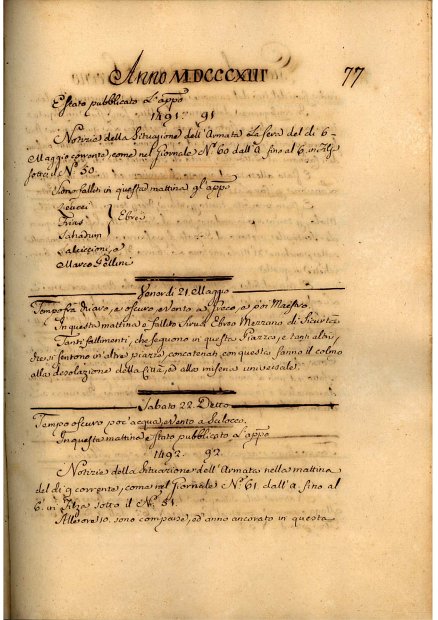 Anno MDCCCXIII 77
È stato pubblicato l'appo
1491. 91
Notizie della Situazione dell'Armata la sera del dì 6
Maggio corrente, come nel Giornale N.° 60 dall'a. fino al 6. in
sotto il N.° 50.
Sono falliti in questa mattina gl'appo
Leucci
Frias Ebrei
Sahadun
Saluccioni, e
Marco Pollini
Venerdì 21 Maggio
Tempo fra chiaro, e oscuro, e vento a Greco, e poi Maestro
In questa mattina è fallito Ebreo Mezzano di Sicurtà
Tanti fallimenti, che seguono in questa Piazza, e tanti altri,
che si sentono in altre piazze, concatenati con questa fanno il colmo
alla desolazione della Città, e alla miseria universale.
Sabato 22. Detto
Tempo oscuro per acqua, e vento a Scilocco.
In questa mattina è stato pubblicato l'appo
1492. 92.
Notizie della Situazione dell'Armata nella mattina
del dì 9 corrente, come nel Giornale N.° 61. dall'a. fino al
6. in Filza sotto il N.° 51.
Alle ore 10. sono comparse, ed anno ancorato in questa